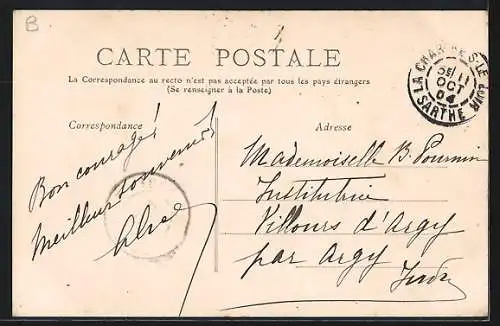 B
CARTE POSTALE
La Correspondance au recto n'est pas acceptée par tous les pays étrangers
(Se renseigner à la Poste)
LA CHARTRE-S-LE LOIR
11
OCT
04
SARTHE
Correspondance
Adresse
Bon courage!
Meilleur souvenir
Mademoiselle B.
Institutrice
Villours d'Argy
par Argy
Indre